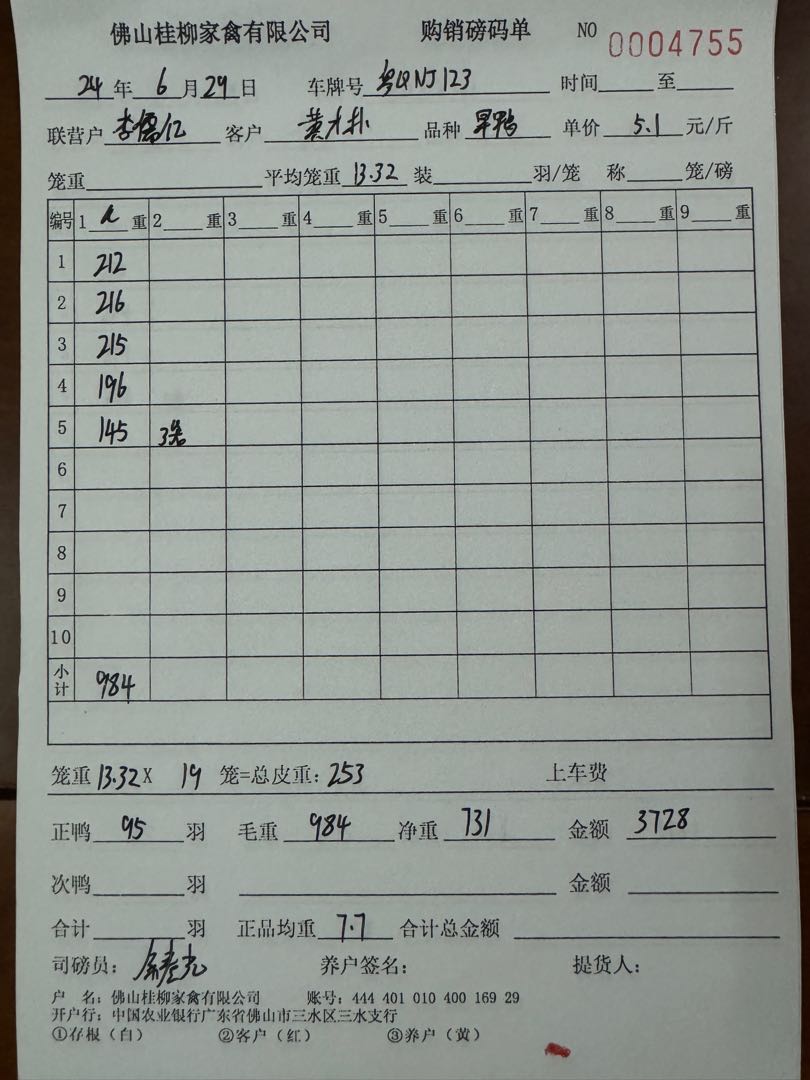 佛山桂柳家禽有限公司 购销磅码单 NO 0004755
24年6月29日 车牌号 粤QNJ123 时间 至
联营户 李儒仁 客户 黄才扑 品种 旱鸭 单价 5.1 元/斤
笼重 平均笼重 13.32 装 羽/笼 称 笼/磅
编号 1 重 2 重 3 重 4 重 5 重 6 重 7 重 8 重 9 重
1 212
2 216
3 215
4 196
5 145 3笼
6
7
8
9
10
小计 984
笼重13.32X 19 笼=总皮重:253 上车费
正鸭 95 羽 毛重 984 净重 731 金额 3728
次鸭 羽 金额
合计 羽 正品均重 7.7 合计总金额
司磅员: 养户签名: 提货人:
户 名:佛山桂柳家禽有限公司 账号:444 401 010 400 169 29
开户行:中国农业银行广东省佛山市三水区三水支行
①存根(白) ②客户(红) ③养户(黄)